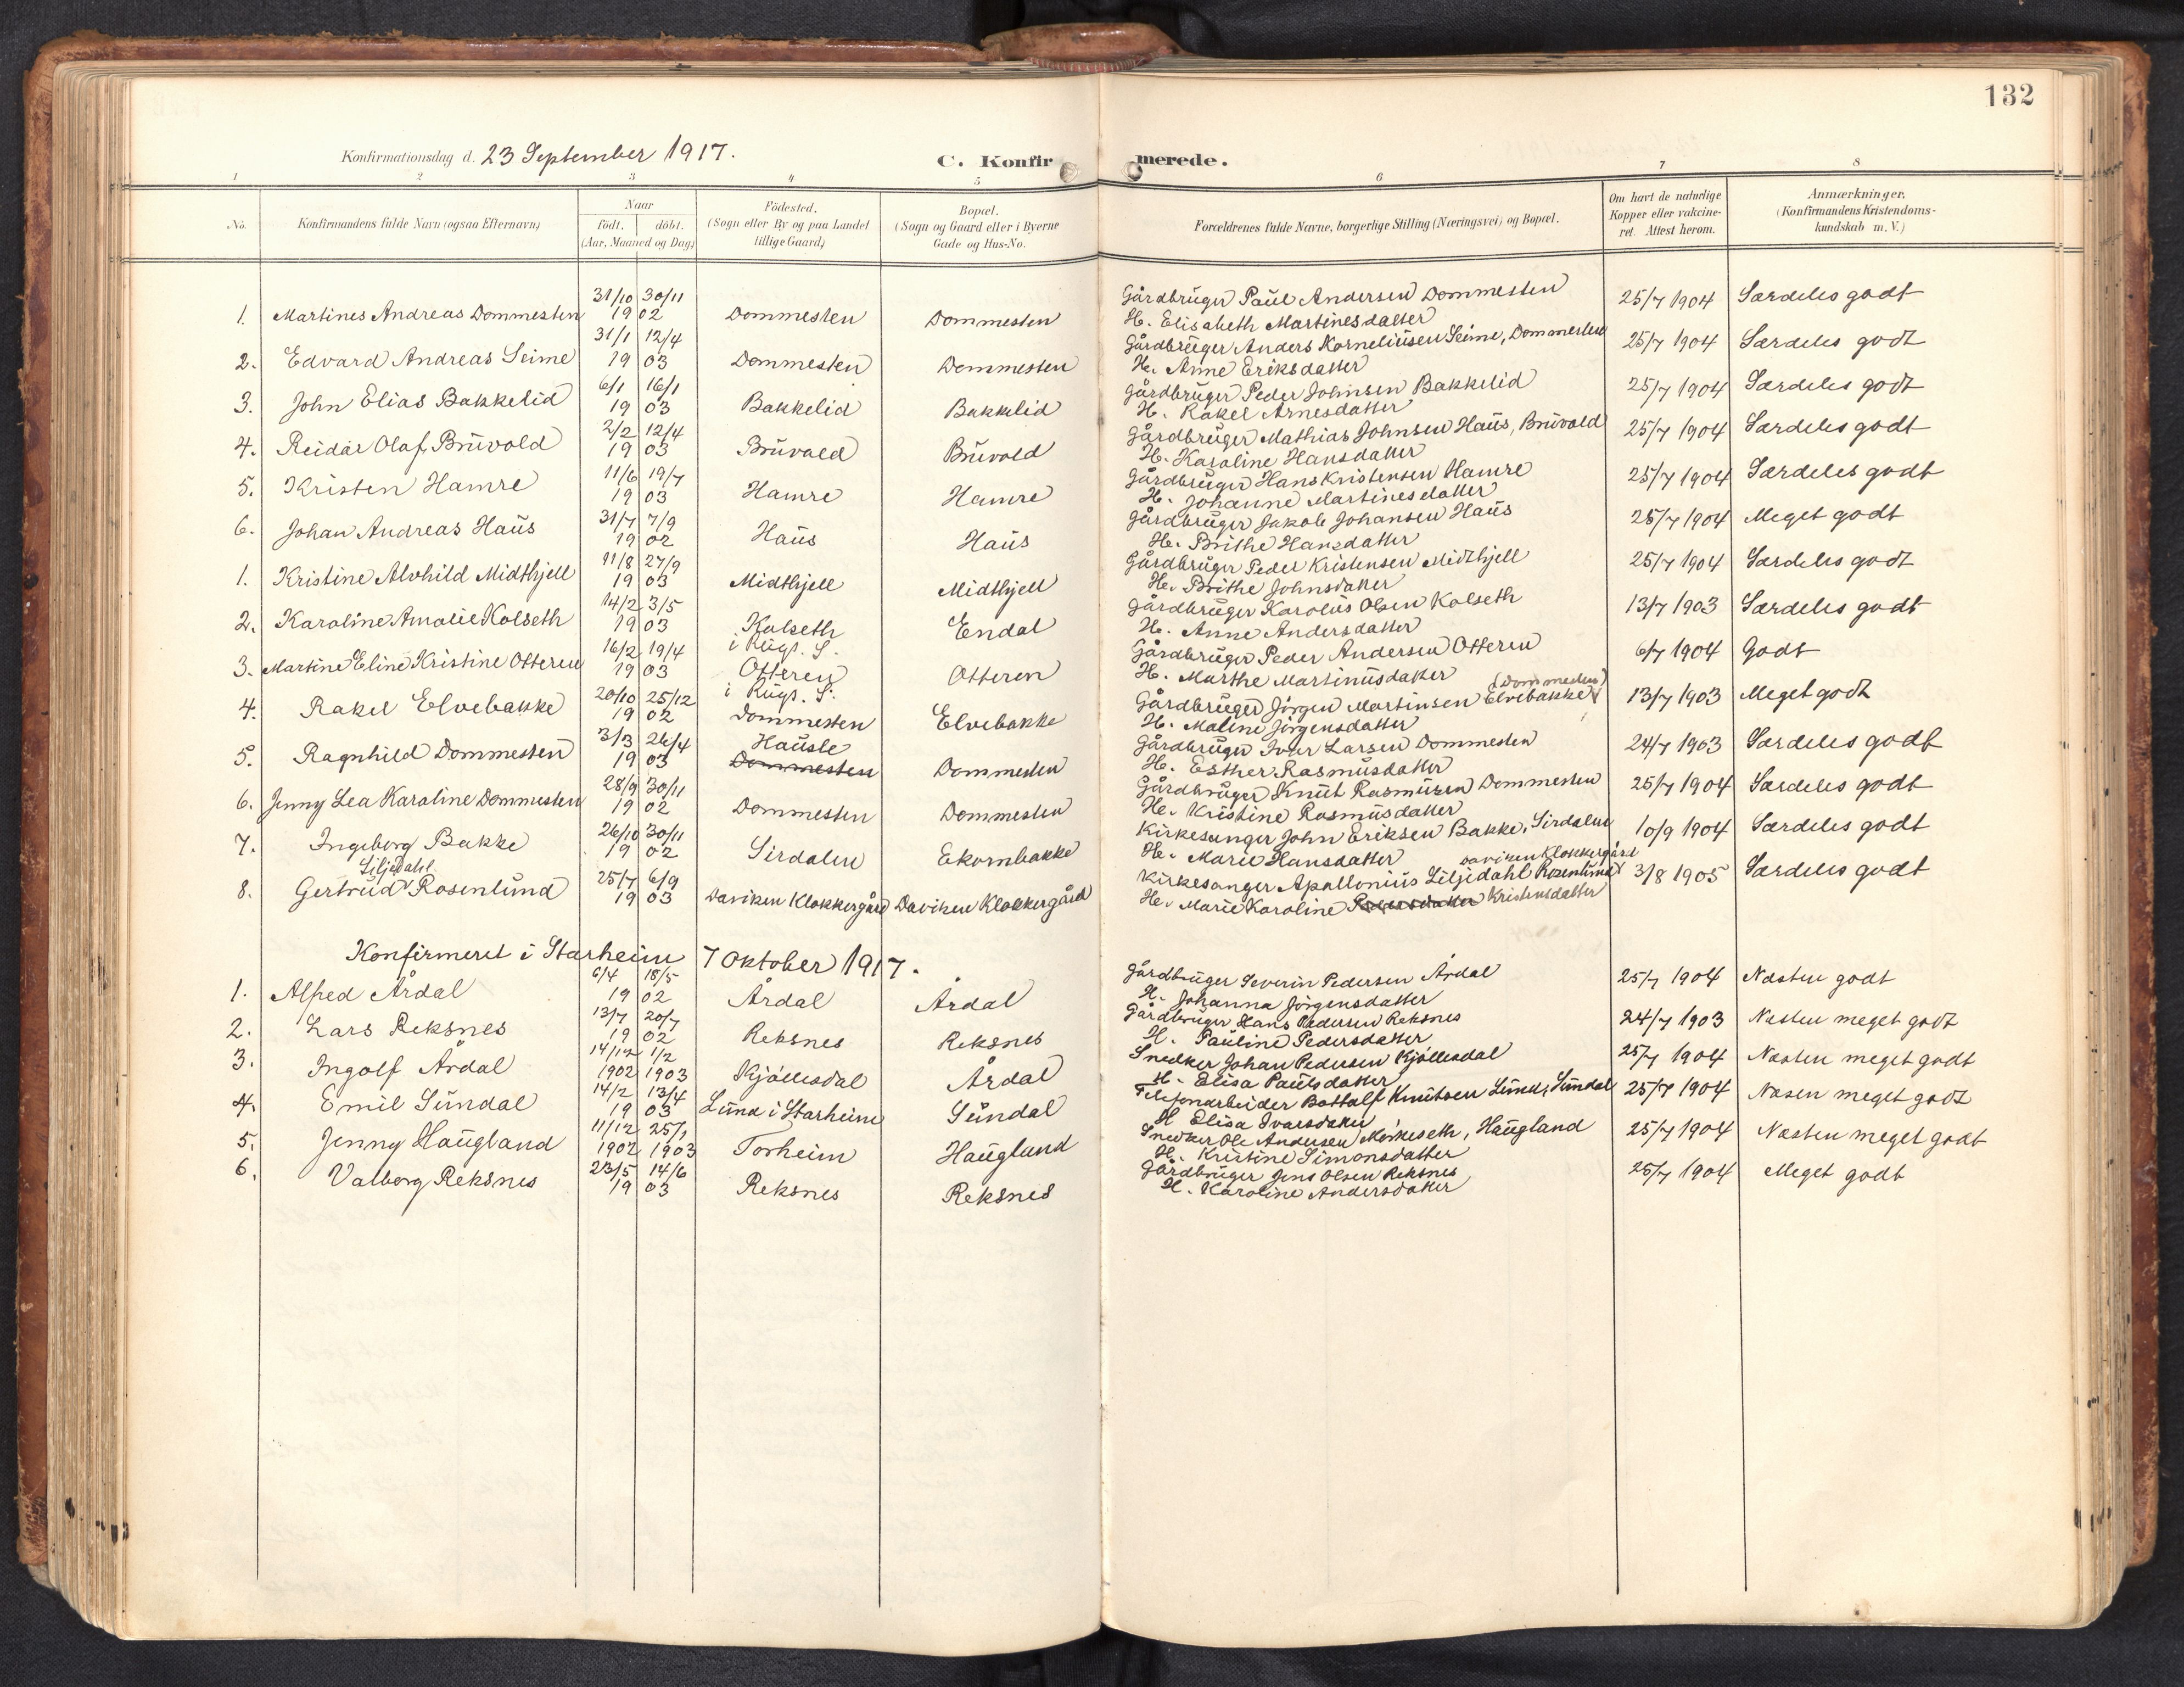 132
Konfirmationsdag d. 23 September 1917.
C. Konfirmerede.
1 2 3 4 5 6 7 8
No. Konfirmandens fulde Navn (ogsaa Efternavn) Naar födt. döbt. (Aar, Maaned og Dag) Födested. (Sogn eller By og paa Landet tillige Gaard) Bopæl. (Sogn og Gaard eller i Byerne Gade og Hus-No. Forældrenes fulde Navne, borgerlige Stilling (Næringsvei) og Bopæl. Om havt de naturlige Kopper eller vakcineret. Attest herom. Anmærkninger. (Konfirmandens Kristendomskundskab m. V.)
1. Martines Andreas Dommesten 31/10 30/11 1902 Dommesten Dommesten Gårdbruger Paul Andersen Dommesten 25/7 1904 Særdeles godt
H. Elisabeth Martinesdatter
2. Edvard Andreas Seime 31/1 12/4 1903 Dommesten Dommesten Gårdbruger Anders Korneliusen Seime, Dommesten 25/7 1904 Særdeles godt
H. Anne Eriksdatter
3. John Elias Bakkelid 6/1 16/1 1903 Bakkelid Bakkelid Gårdbruger Peder Johnsen Bakkelid 25/7 1904 Særdeles godt
H. Rakel Arnesdatter
4. Reidar Olaf Bruvold 2/2 12/4 1903 Bruvold Bruvold Gårdbruger Mathias Johnsen Haus, Bruvold 25/7 1904 Særdeles godt
H. Karoline Hansdatter
5. Kristen Hamre 11/6 19/7 1903 Hamre Hamre Gårdbruger Hans Kristensen Hamre 25/7 1904 Særdeles godt
H. Johanne Martinesdatter
6. Johan Andreas Haus 31/7 7/9 1902 Haus Haus Gårdbruger Jakob Johansen Haus 25/7 1904 Meget godt
H. Brithe Hansdatter
1. Kristine Alvhild Midthjell 11/8 27/9 1903 Midthjell Midthjell Gårdbruger Peder Kristensen Midthjell 25/7 1904 Særdeles godt
H. Brithe Johnsdatter
2. Karoline Amalie Kolseth 14/2 3/5 1903 Kolseth i Rugs. S. Endal Gårdbruger Karolus Olsen Kolseth 13/7 1903 Særdeles godt
H. Anne Andersdatter
3. Martine Eline Kristine Otteren 16/2 19/4 1903 Otteren i Rugs. S. Otteren Gårdbruger Peder Andersen Otteren 6/7 1904 Godt
H. Marthe Martinusdatter
4. Rakel Elvebakke 20/10 25/12 1902 Dommesten Elvebakke Gårdbruger Jörgen Martinsen Elvebakke (Dommesten) 13/7 1903 Meget godt
H. Maline Jörgensdatter
5. Ragnhild Dommesten 3/3 26/4 1903 Hausle Dommesten Dommesten Gårdbruger Ivar Larsen Dommesten 24/7 1903 Særdeles godt
H. Esther Rasmusdatter
6. Jenny Lea Karoline Dommesten 28/9 30/11 1902 Dommesten Dommesten Gårdbruger Knut Rasmusen Dommesten 25/7 1904 Særdeles godt
H. Kristine Rasmusdatter
7. Ingeborg Bakke 26/10 30/11 1902 Sirdalen Ekornbakke Kirkesanger John Eriksen Bakke, Sirdalen 10/9 1904 Særdeles godt
H. Marie Hansdatter
8. Gertrud Liljedahl Rosenlund 25/7 6/9 1903 Daviken Klokkergård Daviken Klokkergård Kirkesanger Apollonius Liljedahl Rosenlund Daviken Klokkergård 3/8 1905 Særdeles godt
H. Marie Karoline Pedersdatter Kristensdatter
Konfirmeret i Starheim 7 Oktober 1917.
1. Alfred Årdal 6/4 18/5 1902 Årdal Årdal Gårdbruger Severin Pedersen Årdal 25/7 1904 Næsten godt
H. Johanna Jörgensdatter
2. Lars Reksnes 13/7 20/7 1902 Reksnes Reksnes Gårdbruger Hans Pedersen Reksnes 24/7 1903 Næsten meget godt
H. Pauline Pedersdatter
3. Ingolf Årdal 14/12 1/2 1902 1903 Kjöllesdal Årdal Snedker Johan Pedersen Kjöllesdal 25/7 1904 Næsten meget godt
H. Elisa Paulsdatter
4. Emil Sundal 14/2 13/4 1903 Lund i Starheim Sundal Telefonarbeider Bottolf Knutsen Lund, Sundal 25/7 1904 Næsen meget godt
H Elisa Ivarsdatter
5. Jenny Haugland 11/12 25/1 1902 1903 Torheim Haugland Snedker Ole Andersen Mörkeseth, Haugland 25/7 1904 Næsten meget godt
H. Kristine Simonsdatter
6. Valborg Reksnes 23/5 14/6 1903 Reksnes Reksnes Gårdbruger Jens Olsen Reksnes 25/7 1904 Meget godt
H. Karoline Andersdatter